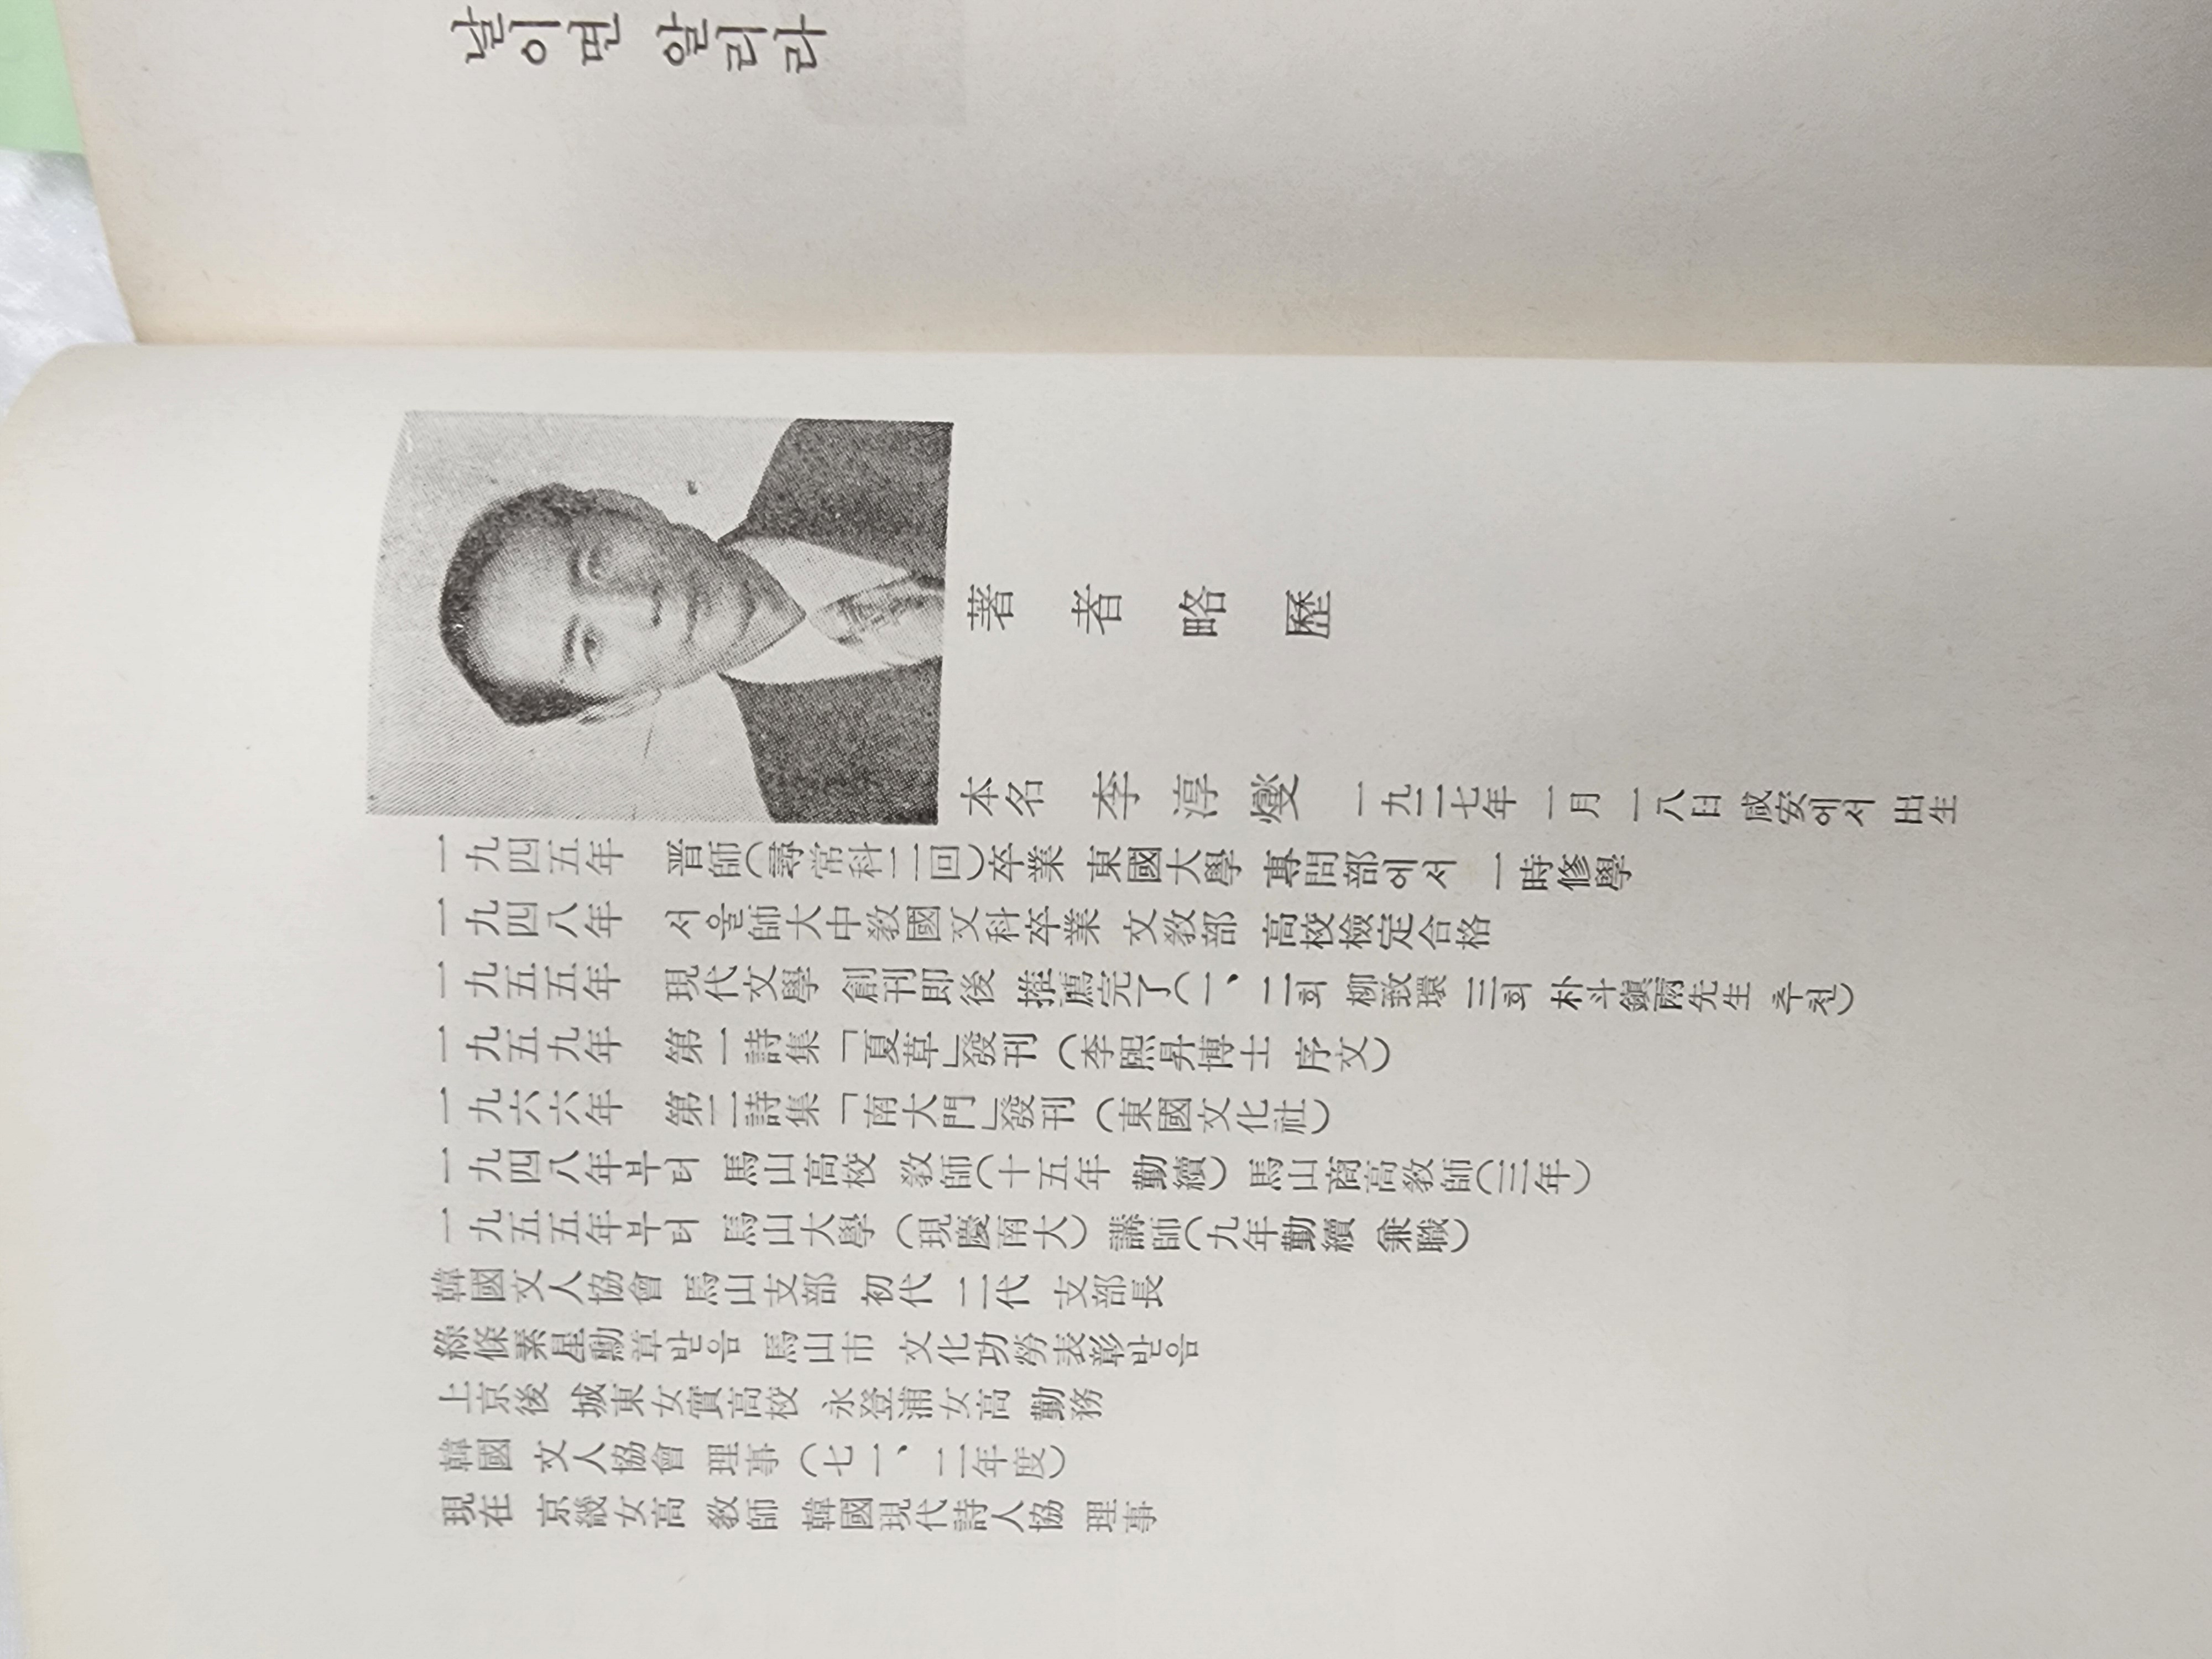 날이면 알리라
著者略歷
本名 李淳燮 一九二七年 一月 一八日 咸安에서 出生
一九四五年 晋師(尋常科二回)卒業 東國大學 專問部에서 一時修學
一九四八年 서울師大中敎國文科卒業 文敎部 高校檢定合格
一九五五年 現代文學 創刊即後 推薦完了(一、二회 柳致環 三회 朴斗鎭兩先生 추천)
一九五九年 第一詩集「夏草」發刊 (李熙昇博士 序文)
一九六六年 第二詩集「南大門」發刊 (東國文化社)
一九四八年부터 馬山高校 敎師(十五年 勤續) 馬山商高敎師(三年)
一九五五年부터 馬山大學 (現慶南大) 講師(九年勤續 兼職)
韓國文人協會 馬山支部 初代 二代 支部長
綠條素星勳章받음 馬山市 文化功勞表彰받음
上京後 城東女實高校 永登浦女高 勤務
韓國 文人協會 理事 (七一、二年度)
現在 京畿女高 敎師 韓國現代詩人協 理事